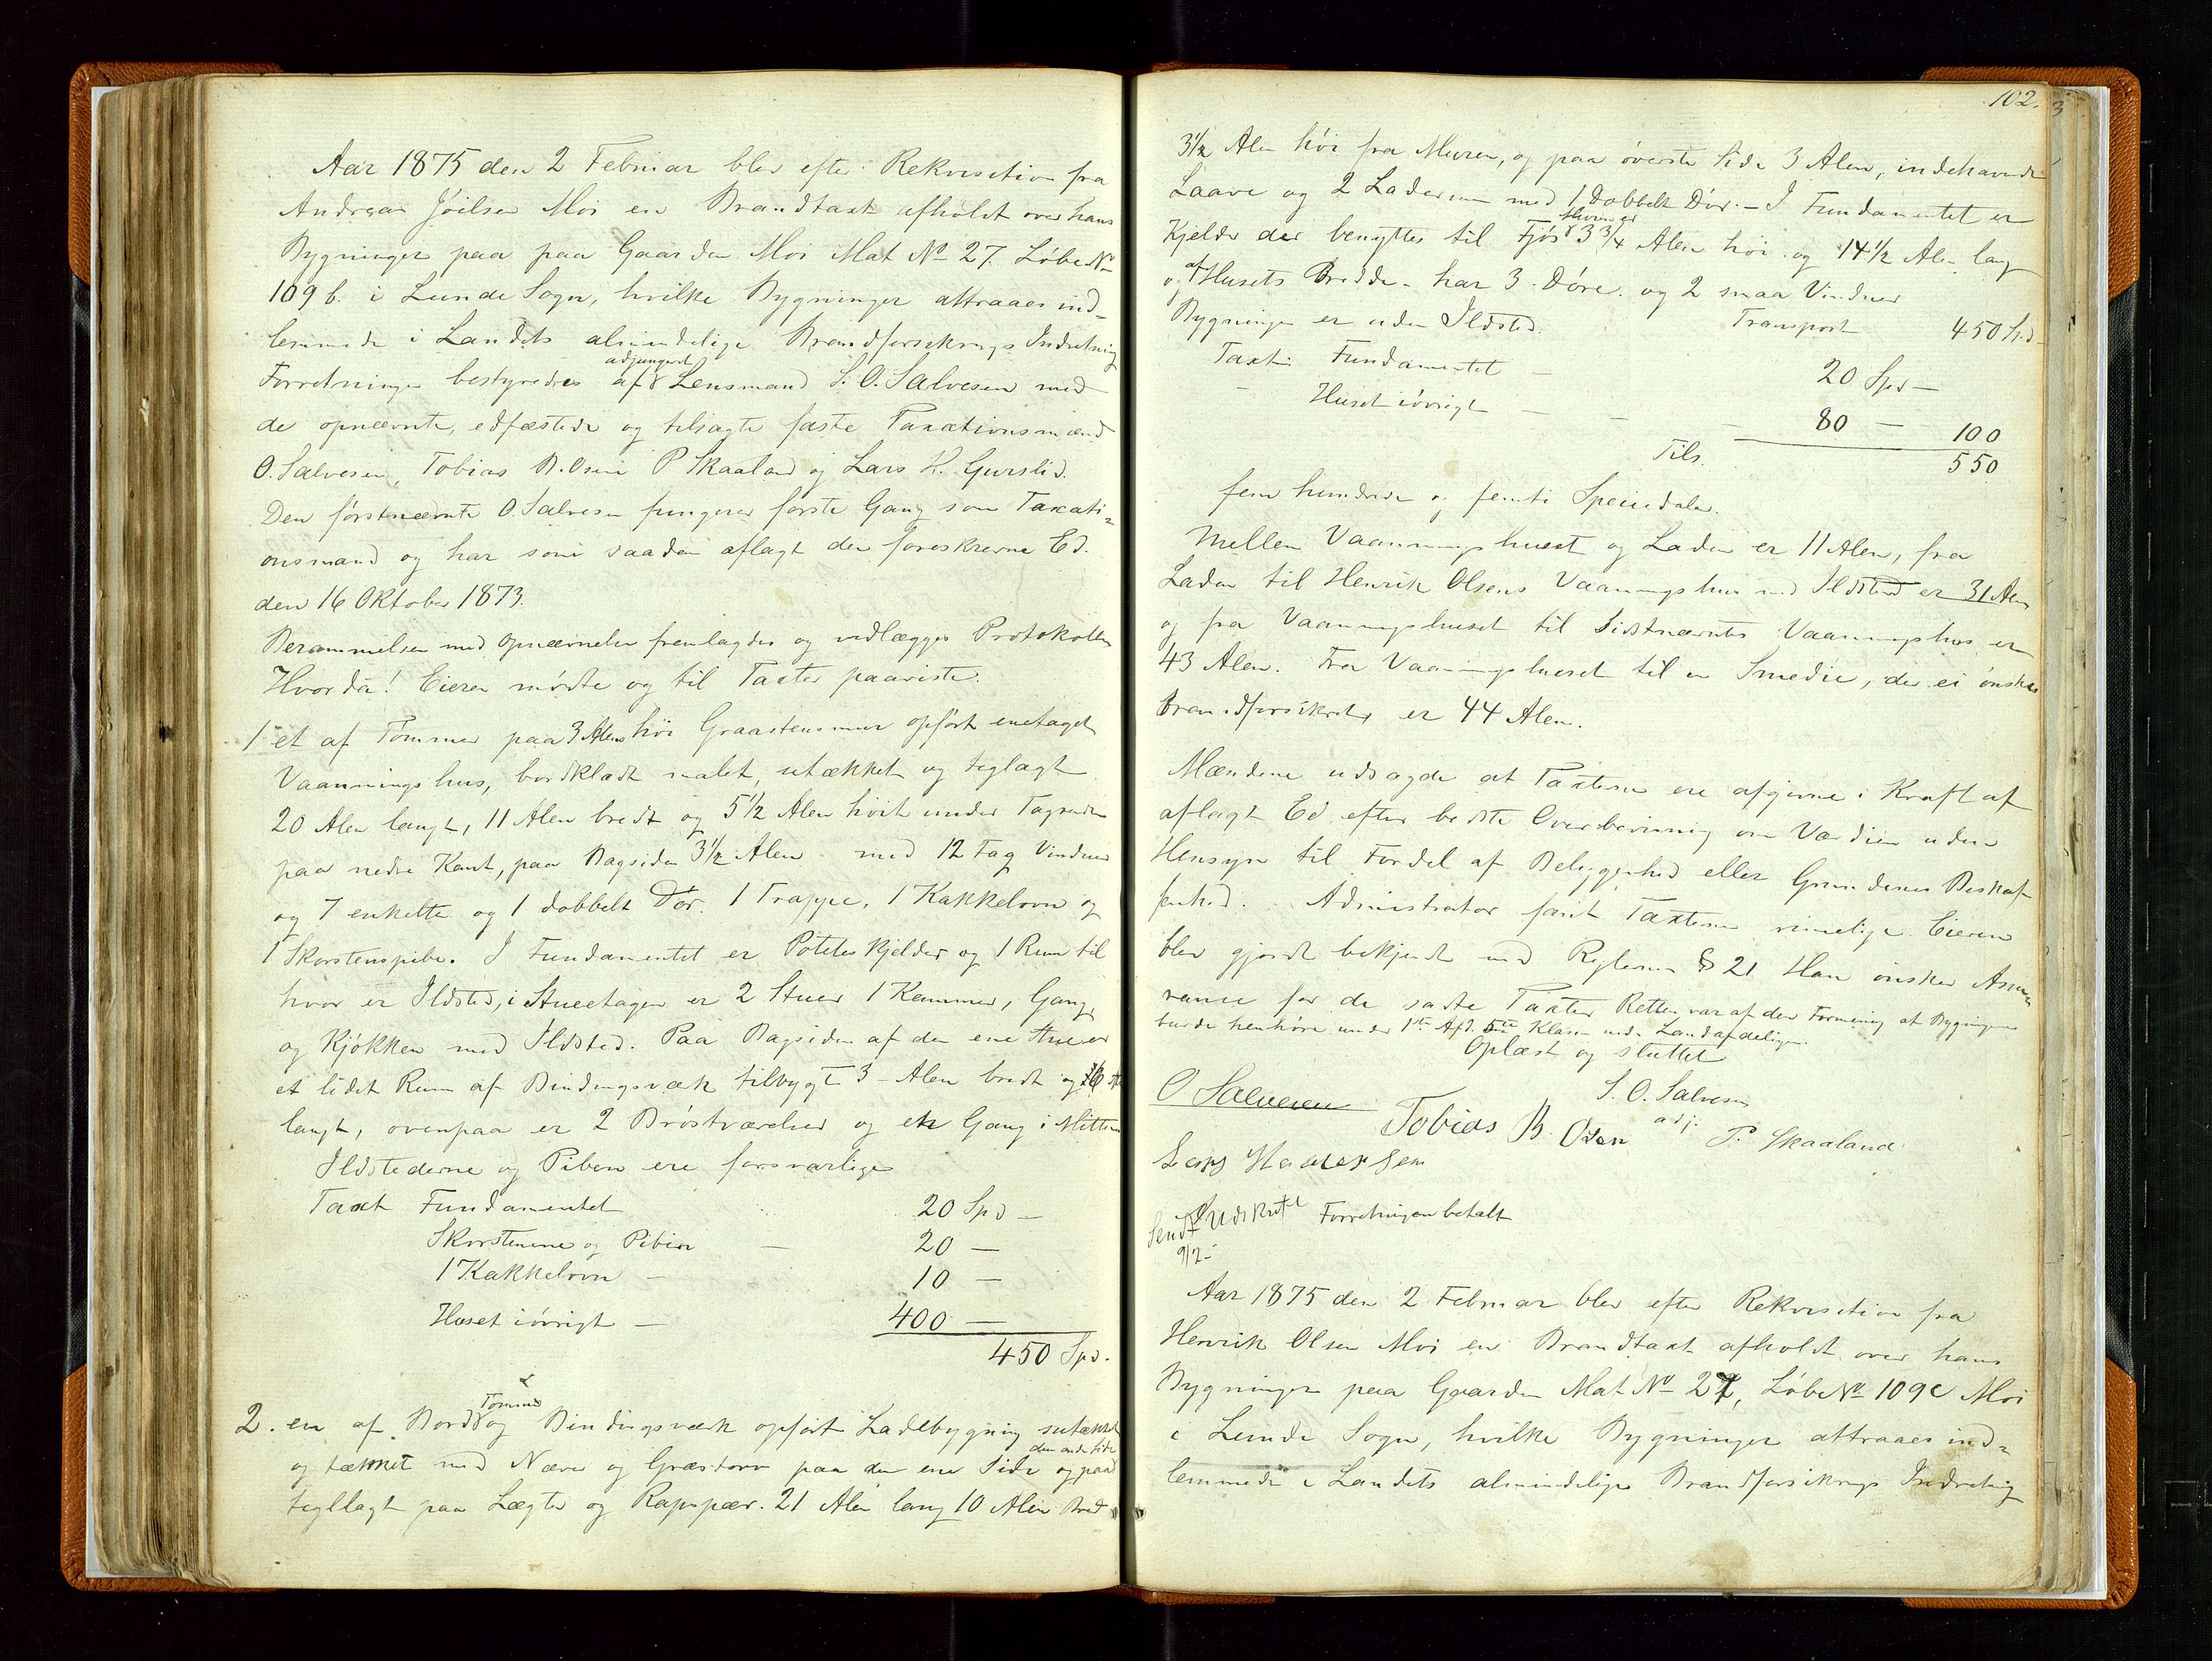 Aar 1875 den 2 Februar blev efter Rekvisition fra
Andreas Jöilsen Moi en Brandtaxt afholdt over hans
Bygninger paa paa Gaarden Moi Mat No 27. Löbe No
109 b. i Lunde Sogn, hvilke Bygninger attraaes ind-
lemmede i Landets almindelige Brandforsikrings Indretning
Forretningen bestyredes af adjungeret Lensmand S. O. Salvesen med
de opnævnte, edfæstede og tilsagte faste Taxationsmænd
O. Salvesen, Tobias B. Osen P Skaaland og Lars H. Gurslid.
Den förstnævnte O. Salvesen fungerer förste Gang som Taxati-
onsmand og har som saadan aflagt den foreskrevne Ed.
den 16 Oktober 1873.
Berammelsen med Opnævnelse fremlagdes og vedlægges Protokollen
Hvorda! Eieren mödte og til Taxter paaviste.
1 et af Tömmer paa 3 Alens höi Graastensmur opfört enetages
Vaaningshus, bordklædt malet, sutækket og teglagt
20 Alen langt, 11 Alen bredt og 5 1/2 Alen höit under Tagrenden
paa nedre Kant, paa Bagsiden 3 1/2 Alen med 12 Fag Vinduer
og 7 enkelte og 1 dobbelt Dör. 1 Trappe, 1 Kakkelovn og
1 Skorstenspibe. I Fundamentet er Potteskjelder og 1 Rum til
hvor er Ildsted, i Stueetagen er 2 Stuer 1 Kammer, Gang
og Kjökken med Ildsted. Paa Bagsiden af den ene Stue er
et lidet Rum af Bindingsværk tilbygt 3 Alen bredt og
langt, ovenpaa er 2 Bröstværelser og en Gang i Mitten
Ildstederne og Piben ere forsvarlige
Taxt Fundamentet 20 Spd -
Skorstenene og Piben - 20 -
1 Kakkelovn - 10 -
Huset iövrigt - 400 -
450 Spd.
2. en af Bord Tömmer og Bindingsværk opfört Ladebygning sutækket
og tækket med Næver og Græstorv paa den ene Side og paa den anden Side
tegllagt paa Lægter og Rapspær. 21 Alen lang 10 Alen Bred
102.
3 1/2 Alen höi fra Muren, og paa överste Side 3 Alen, indehavende
Laave og 2 Laderum med 1 Dobbelt Dör. - I Fundamentet er
Kjelder der benyttes til Fjös Muren er 3 3/4 Alen höi og 14 1/2 Alen lang
og af Husets Bredde - har 3 Döre og 2 smaa Vinduer
Bygningen er uden Ildsted. Transport 450 Spd
Taxt: Fundamentet - 20 Spd -
- Huset iövrigt - - - 80 - 100
Tils. 550
fem hundrede og femti Speciedaler.
Mellem Vaaningshuset og Laden er 11 Alen, fra
Laden til Henrik Olsens Vaaningshus med Ildsted er 31 Alen
og fra Vaaningshuset til Sidstnævntes Vaaningshus er
43 Alen. Fra Vaaningshuset til en Smedie, der ei önskes
brandforsikret, er 44 Alen.
Mændene udsagde at Taxterne ere afgivne i Kraft af
aflagt Ed efter bedste Overbevisning om Værdien uden
Hensyn til Fordel af Beliggenhed eller Grundenes Beskaf-
fenhed. Administrator fandt Taxterne rimelige. Eieren
blev gjordt bekjendt med Reglernes § 21 Han önsker Assu-
rance for de satte Taxter Retten var af den Formening at Bygningerne
burde henhöre under 1ste Afd. 5te Klasse under Landafdelingen.
Oplæst og sluttet
O Salvesen Tobias B. Osen S. O. Salvesen adj. P. Skaaland
Sendt Udskrift Forretningen betalt
9/2 -
Aar 1875 den 2 Februar blev efter Rekvisition fra
Henrik Olsen Moi en Brandtaxt afholdt over hans
Bygninger paa Gaarden Mat No 27, Löbe No 109 c Moi
i Lunde Sogn, hvilke Bygninger attraaes ind-
lemmede i Landets almindelige Brandforsikrings Indretning